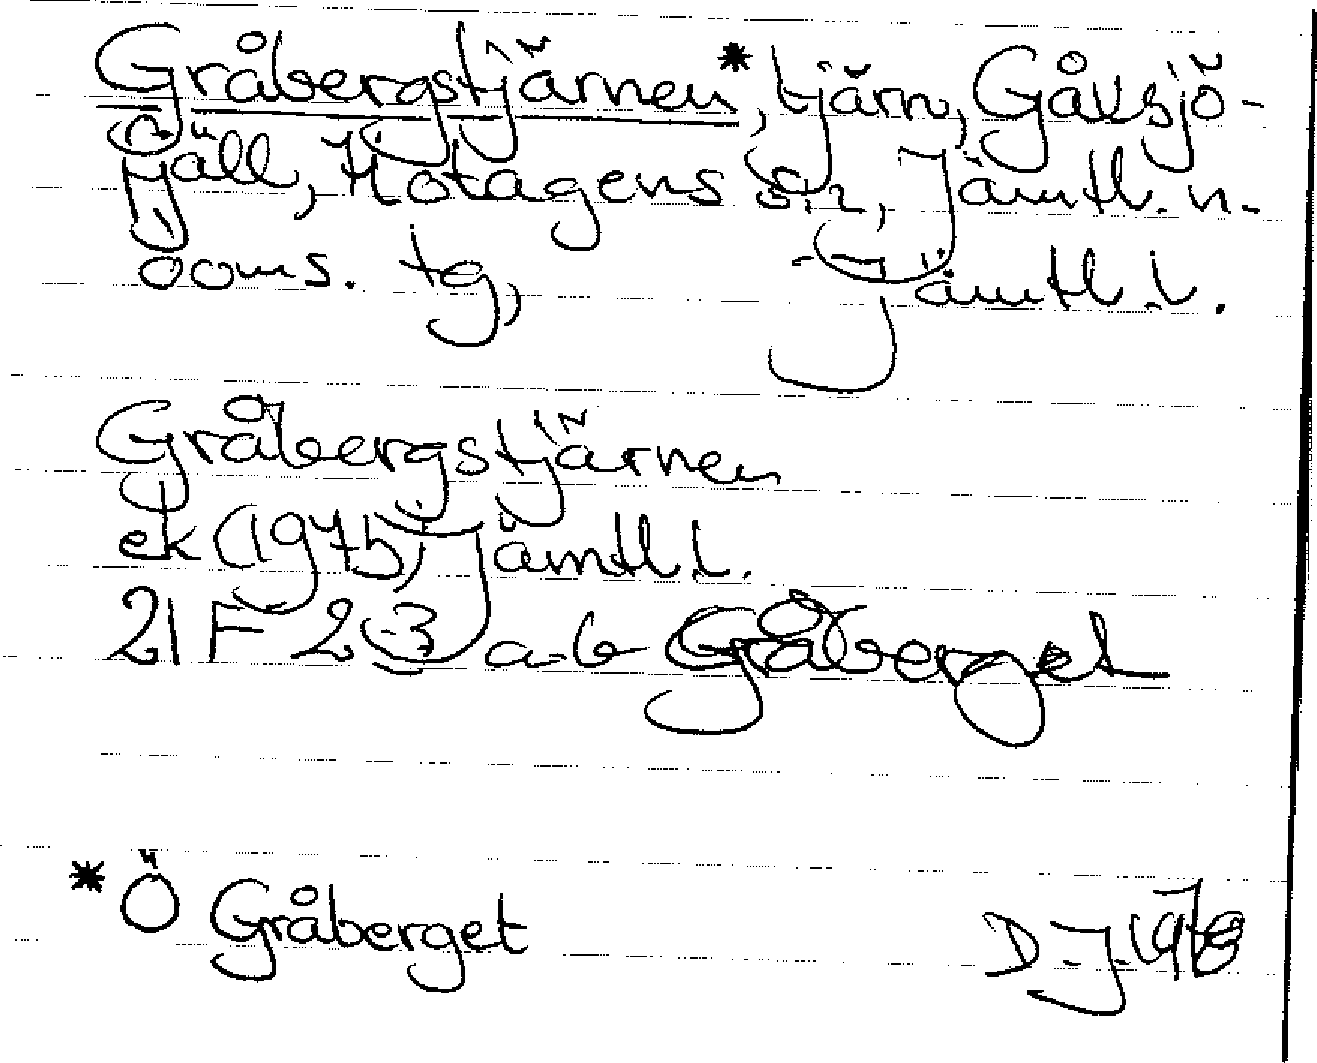 Gråbergstjärnen*, tjärn, Gåxsjö-
fjäll, Hotagens sn, Jämtl. n.
doms. tg, Jämtl. l.
Gråbergstjärnen
ek (1975) Jämtl. l.
21 F 23 a-b Gråberget
* Ö Gråberget
D.J. 1978